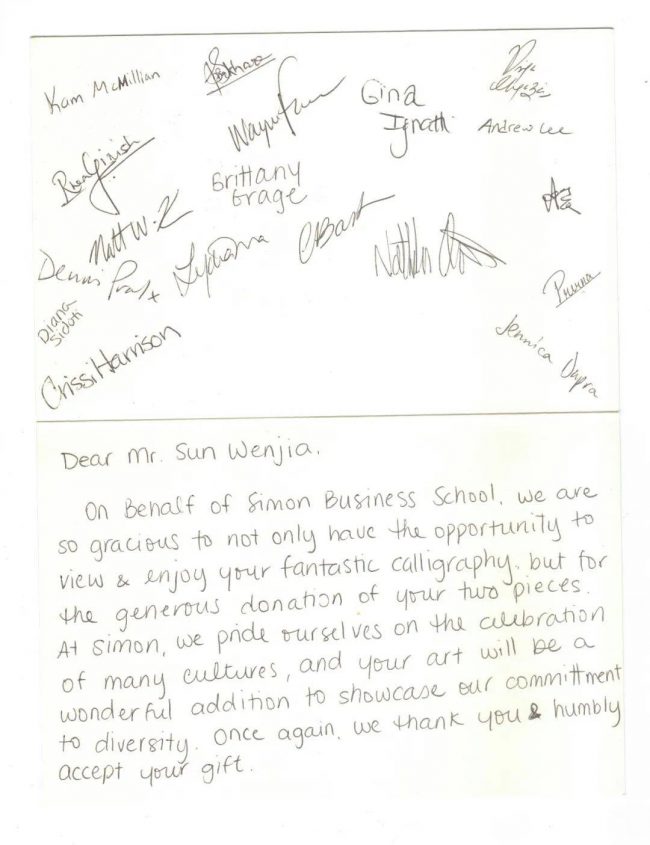 Kam McMillian
Gina
Ignatti
Andrew Lee
Brittany
Grage
Matt W.
Dennis
Diana
Sidoti
Crissi Harrison
Jennica
Dear Mr. Sun Wenjia,
On Behalf of Simon Business School, we are
so gracious to not only have the opportunity to
view & enjoy your fantastic calligraphy, but for
the generous donation of your two pieces.
At Simon, we pride ourselves on the celebration
of many cultures, and your art will be a
wonderful addition to showcase our committment
to diversity. Once again, we thank you & humbly
accept your gift.